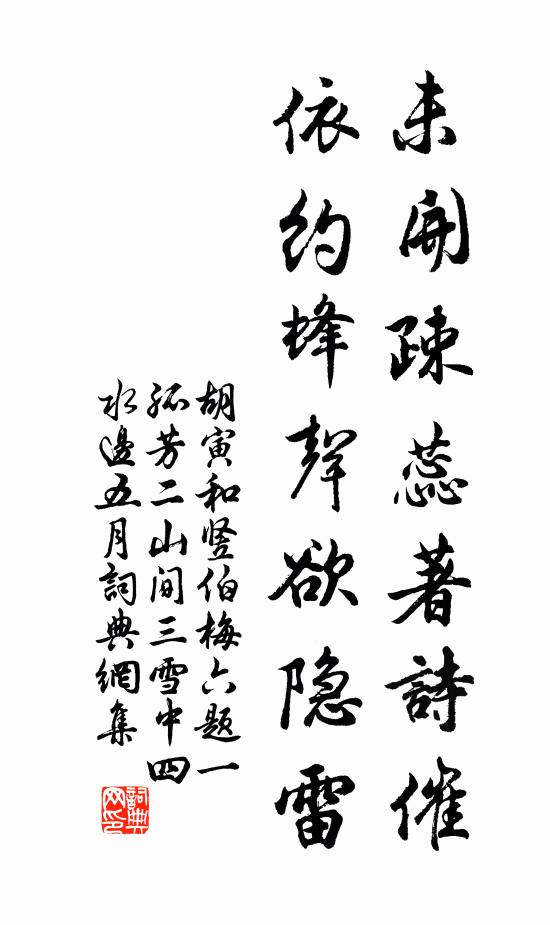 未開疎蕊著詩催
依約蜂聲欲隐雷
胡寅和豎伯梅六题一
孤芳二山间三雪中四
水邊五月詞典網集
詞典网印